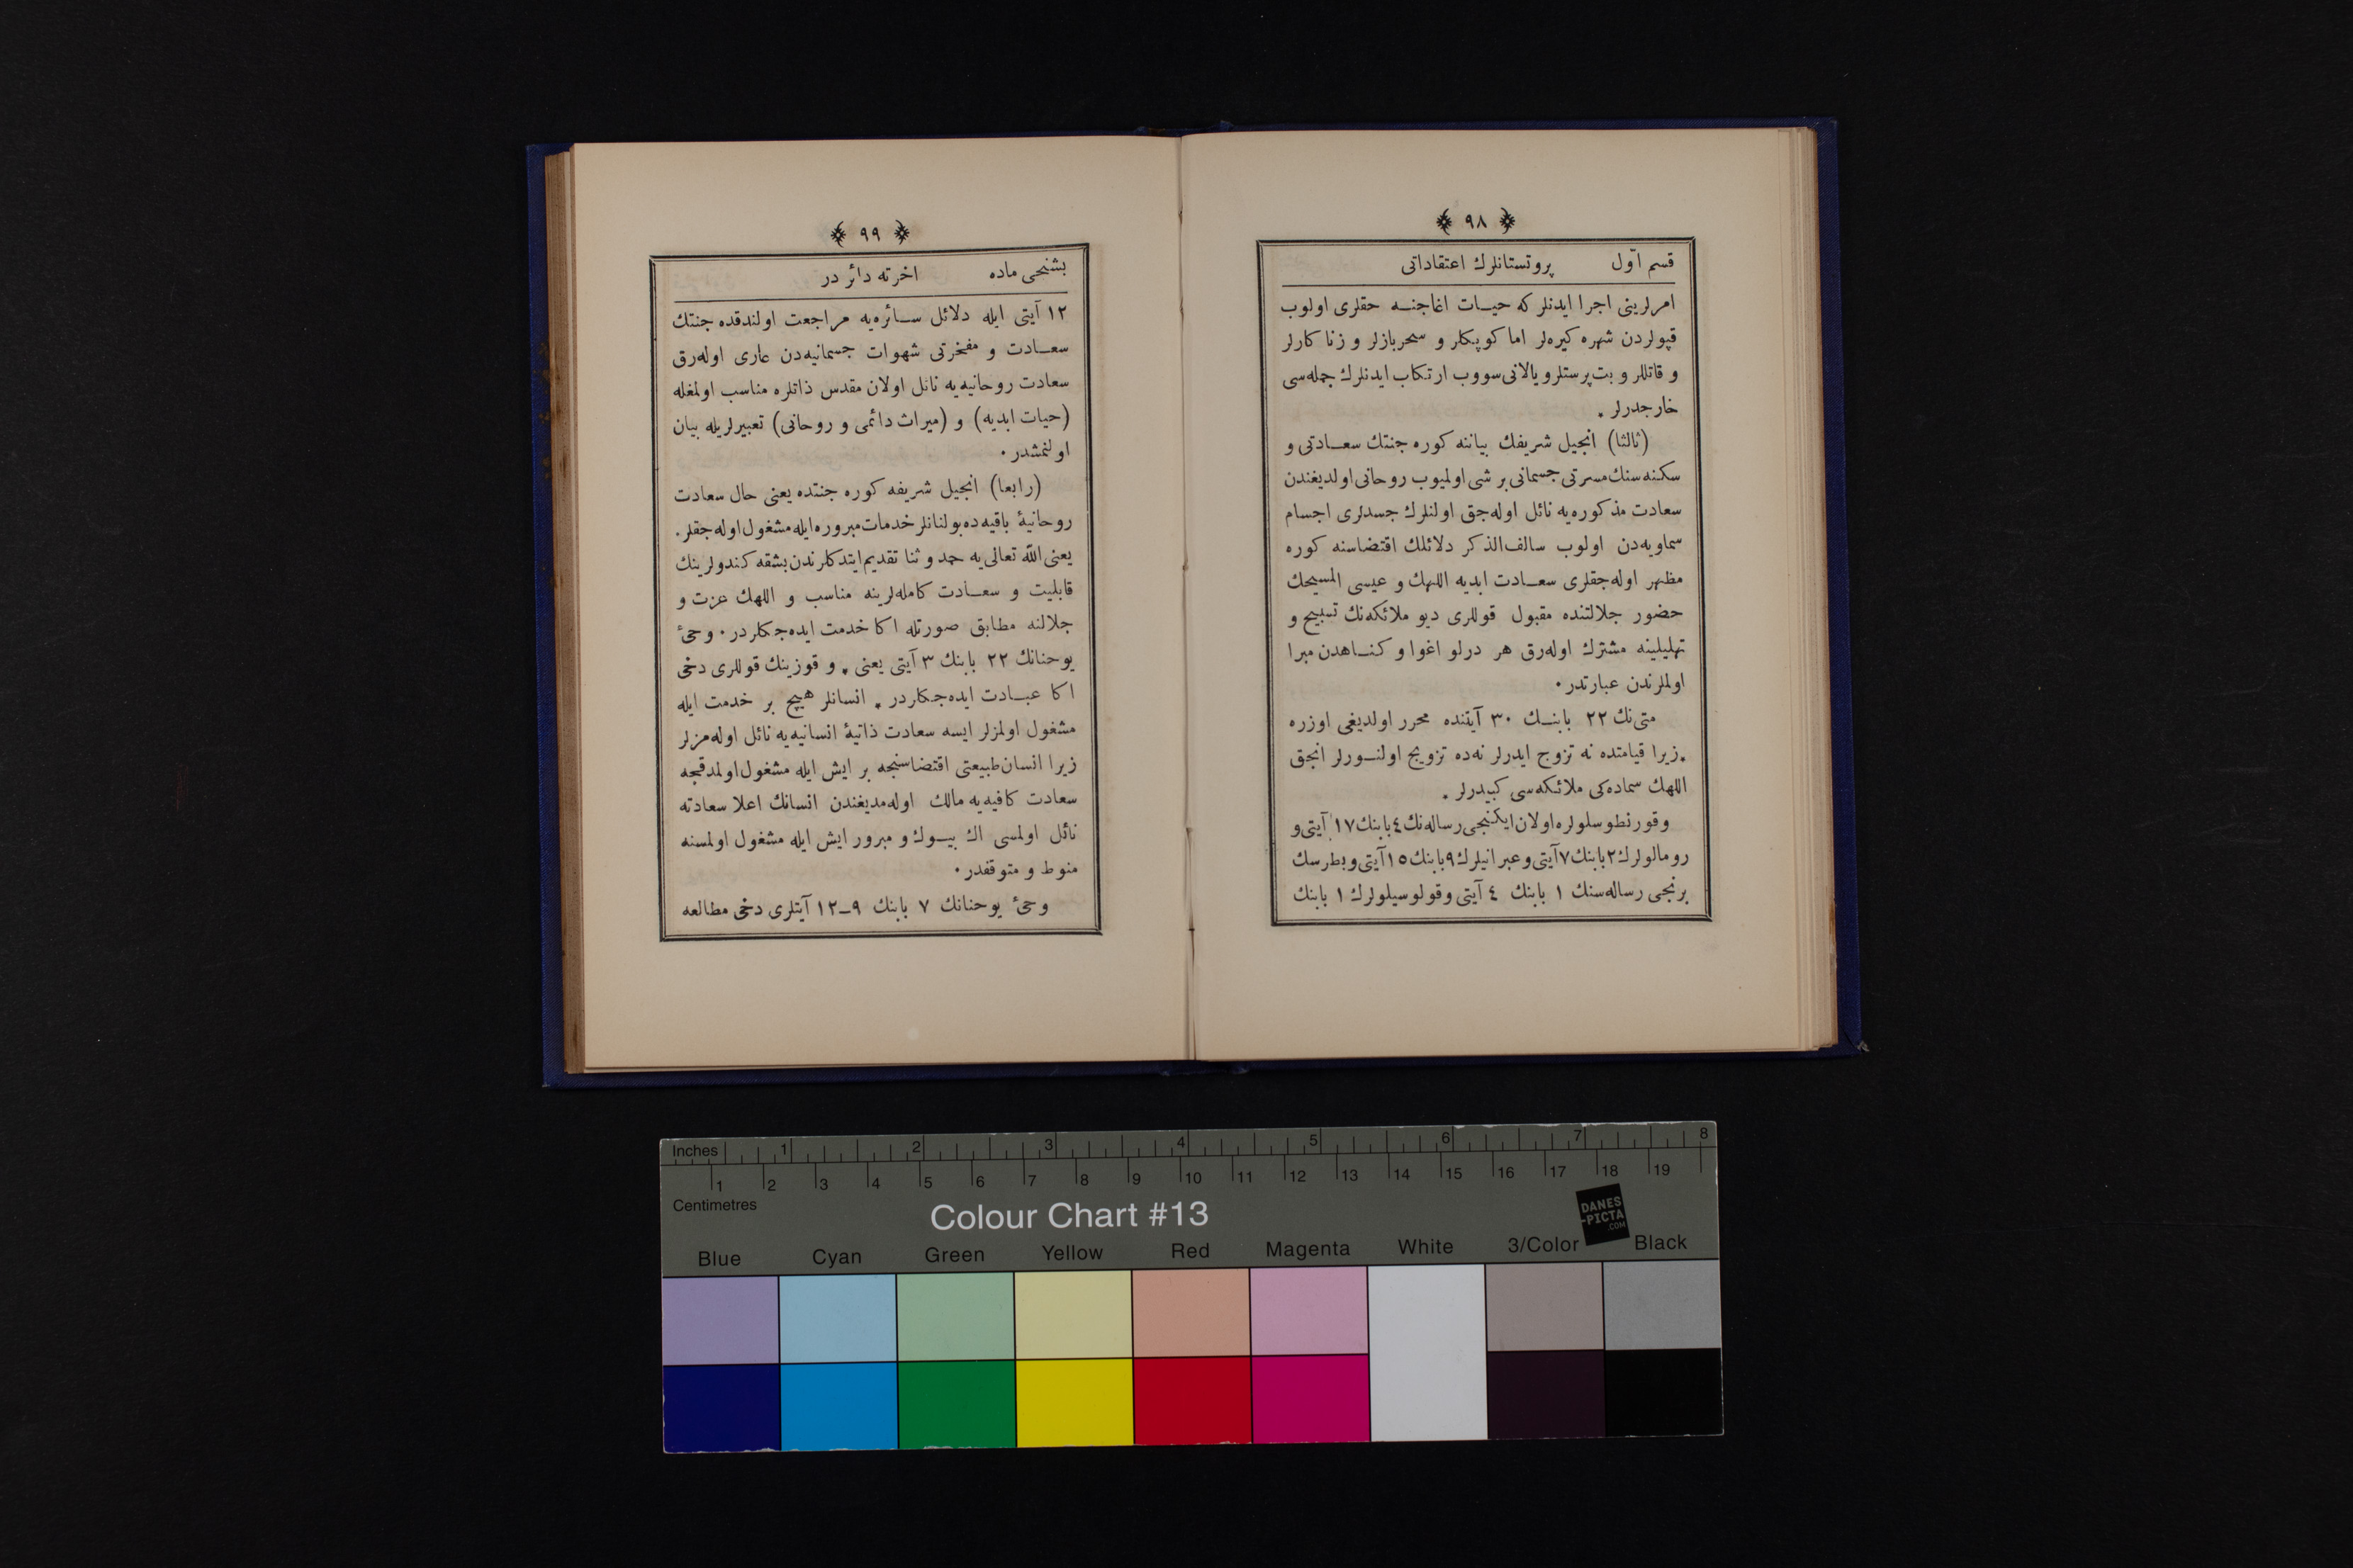 ﴾ ٩٨ ﴿
قسم اوّل پروتستانلرك اعتقاداتی
امرلرینی اجرا ایدنلر كه حیـات اغاجنـه حقلری اولوب
قپولردن شهره كیره‌لر اما كوپكلر و سحربازلر و زناكارلر
و قاتللر و بت‌پرستلر و یالانی سووب ارتكاب ایدنلرك جمله‌سی
خارجدرلر ٭
(ثالثا) انجیل شریفك بیاننه كوره جنتك سعـادتی و
سكنه‌سنك مسرتی جسمانی بر شی اولمیوب روحانی اولدیغندن
سعادت مذكوره‌یه نائل اوله‌جق اولنلرك جسدلری اجسام
سماویه‌دن اولوب سالف‌الذكر دلائلك اقتضاسنه كوره
مظهر اوله‌جقلری سعـادت ابدیه اللهك و عیسی المسیحك
حضور جلالتنده مقبول قوللری دیو ملائكه‌نك تسبیح و
تهلیلینه مشترك اوله‌رق هر درلو اغوا و كنـاهدن مبرا
اولملرندن عبارتدر ٠
متی‌نك ٢٢ بابنـك ٣٠ آیتنده محرر اولدیغی اوزره
٭ زیرا قیامتده نه تزوج ایدرلر نه‌ده تزویج اولنـورلر انجق
اللهك سماده‌كی ملائكه‌سی كبیدرلر ٭
و قورنطوسلولره اولان ایكنجی رساله‌نك ٤ بابنك ١٧ آیتی و
رومالولرك ٢ بابنك ٧ آیتی و عبرانیلرك ٩ بابنك ١٥ آیتی و بطرسك
برنجی رساله‌سنك ١ بابنك ٤ آیتی و قولوسیلولرك ١ بابنك
﴾ ٩٩ ﴿
بشنجی ماده اخرته دائر در
١٢ آیتی ایله دلائل سـائره‌یه مراجعت اولندقده جنتك
سعـادت و مفخرتی شهوات جسمانیه‌دن عاری اوله‌رق
سعادت روحانیه‌یه نائل اولان مقدس ذاتلره مناسب اولمغله
(حیات ابدیه) و (میراث دائمی و روحانی) تعبیرلریله بیان
اولنمشدر ٠
(رابعا) انجیل شریفه كوره جنتده یعنی حال سعادت
روحانیهٔ باقیه‌ده بولنانلر خدمات مبروره ایله مشغول اوله‌جقلر ٠
یعنی اللّه تعالی‌یه حمد و ثنا تقدیم ایتدكلرندن بشقه كندولرینك
قابلیت و سعـادت كامله‌لرینه مناسب و اللهك عزت و
جلالنه مطابق صورتله اكا خدمت ایده‌جكلردر ٠ وحیٔ
یوحنانك ٢٢ بابنك ٣ آیتی یعنی ٭ و قوزینك قوللری دخی
اكا عبـادت ایده‌جكلردر ٭ انسانلر هیچ بر خدمت ایله
مشغول اولمزلر ایسه سعادت ذاتیهٔ انسانیه‌یه نائل اوله‌مزلر
زیرا انسان طبیعتی اقتضاسنجه بر ایش ایله مشغول اولمدقجه
سعادت كافیه‌یه مالك اوله‌مدیغندن انسانك اعلا سعادته
نائل اولمسی اك بیـوك و مبرور ایش ایله مشغول اولمسنه
منوط و متوقفدر ٠
وحیٔ یوحنانك ٧ بابنك ٩–١٢ آیتلری دخی مطالعه
Inches 1 2 3 4 5 6 7 8
1 2 3 4 5 6 7 8 9 10 11 12 13 14 15 16 17 18 19
Centimetres
Colour Chart #13
DANES
-PICTA
.COM
Blue Cyan Green Yellow Red Magenta White 3/Color Black